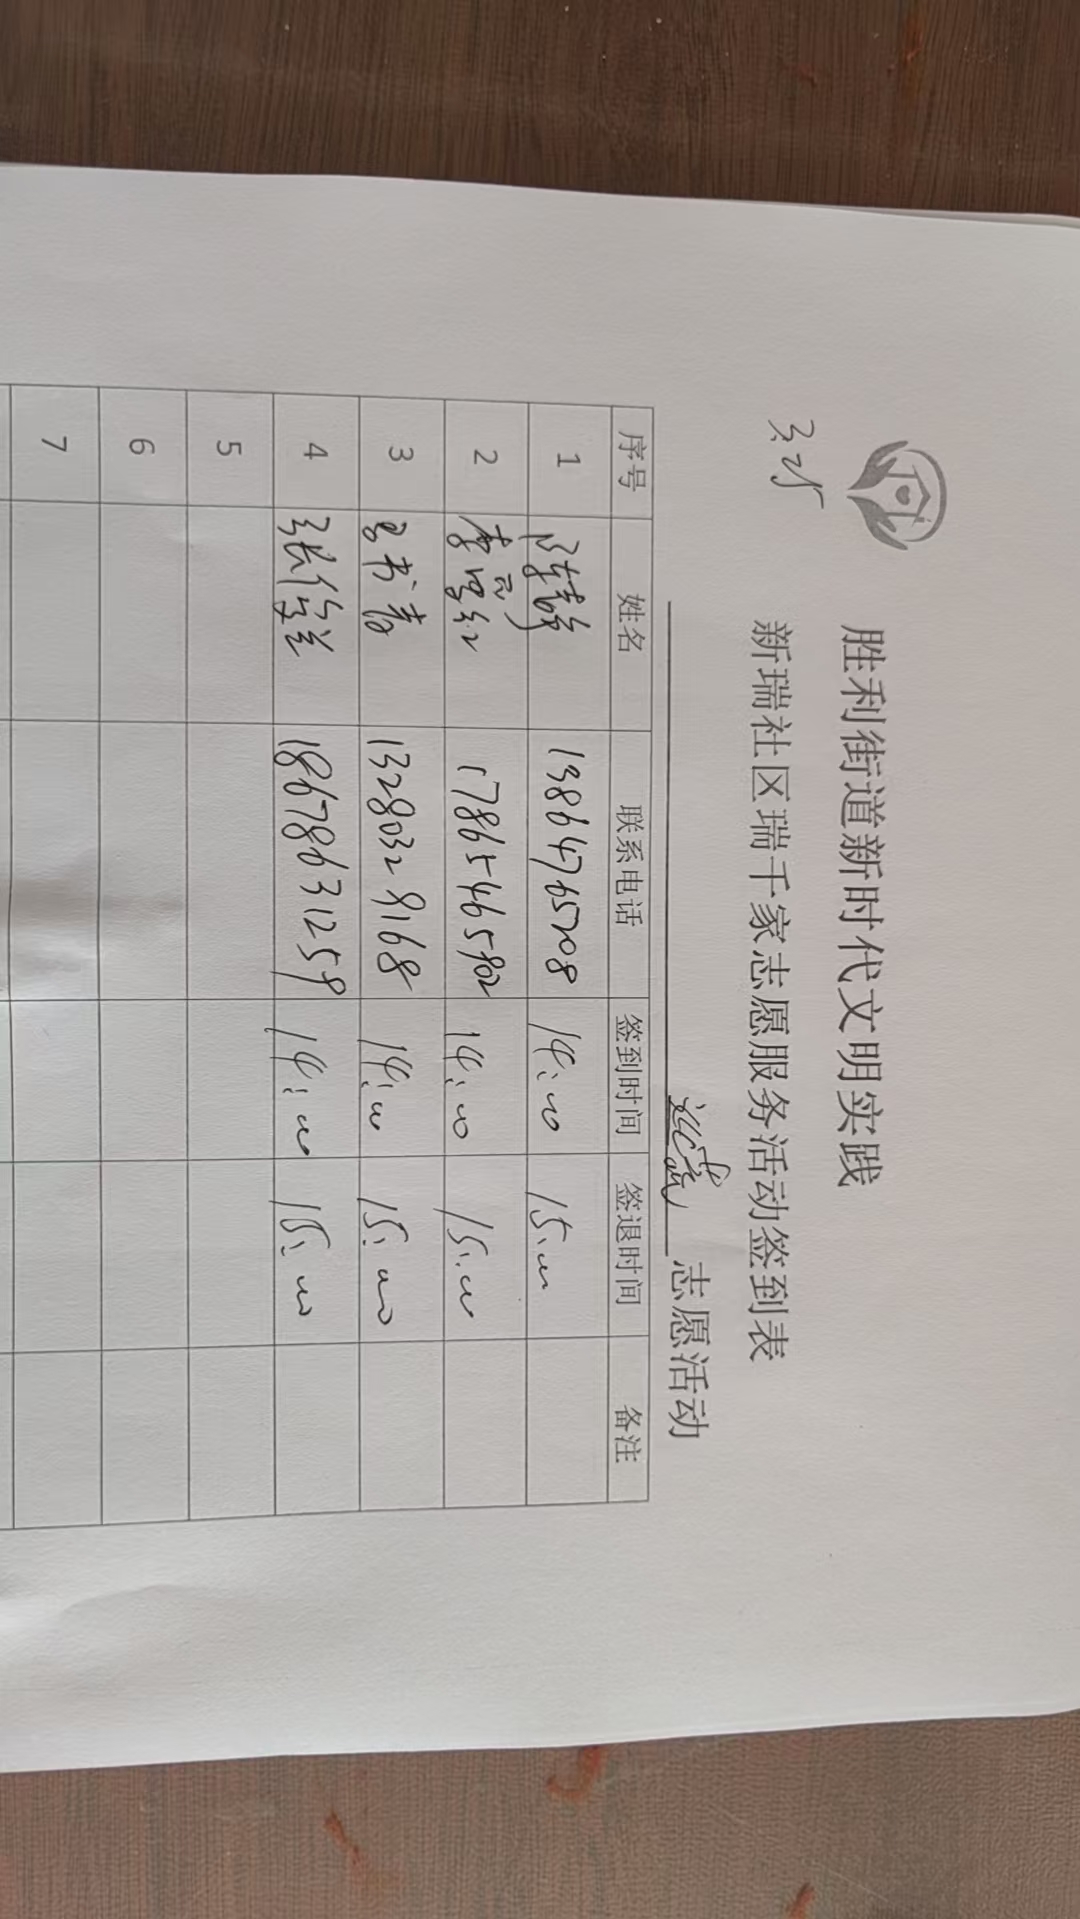 胜利街道新时代文明实践
3.25 新瑞社区瑞千家志愿服务活动签到表
志愿活动
序号 姓名 联系电话 签到时间 签退时间 备注
1 13864765208 14:00 15:00
2 17865465802 14:00 15:00
3 13280329168 14:00 15:00
4 张学兰 18678631259 14:00 15:00
5
6
7